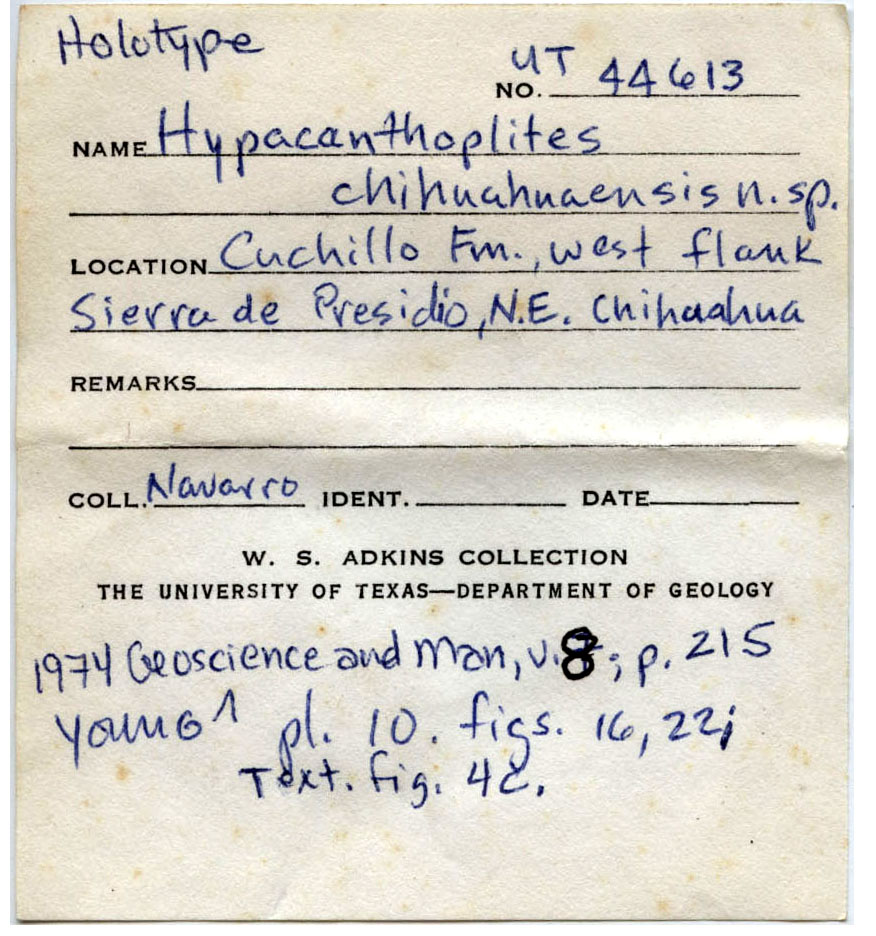 Holotype
NO. UT 44613
NAME Hypacanthoplites
chihuahuaensis n.sp.
LOCATION Cuchillo Fm., west flank
Sierra de Presidio, N.E. Chihuahua
REMARKS
COLL. Navarro IDENT. DATE
W. S. ADKINS COLLECTION
THE UNIVERSITY OF TEXAS—DEPARTMENT OF GEOLOGY
1974 Geoscience and Man, v. 8; p. 215
Young ^ pl. 10. figs. 16, 22;
Text. fig. 4c.